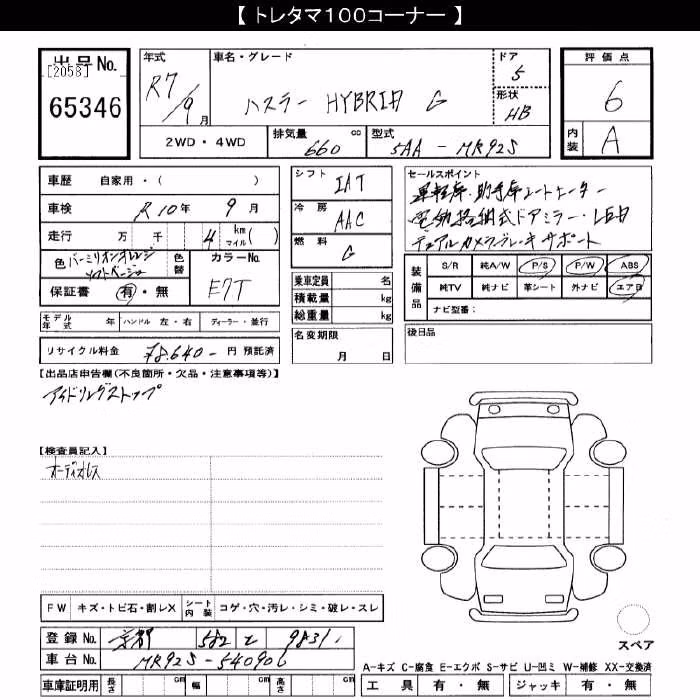 【 トレタマ100コーナー 】
出品No. [2058] 65346
年式 R7/9月
車名・グレード ハスラー HYBRID G
ドア 5
形状 HB
評価点 6
内装 A
2WD・4WD
排気量 660 cc
型式 5AA-MR92S
車歴 自家用・( )
車検 R10年 9月
走行 万 千 4 km マイル( )
色 バーミリオンオレンジ ソフトベージュ
色替
カラーNo. E7T
保証書 有・無
モデル年式 年 ハンドル 左・右 ディーラー・並行
リサイクル料金 ¥8,640- 円 預託済
シフト IAT
冷房 AAC
燃料 G
乗車定員 名
積載量 kg
総重量 kg
名変期限 月 日
セールスポイント
運転席・助手席シートヒーター
電動格納式ドアミラー・LED
デュアルカメラブレーキサポート
装備品
S/R 純A/W P/S P/W ABS
純TV 純ナビ 革シート 外ナビ エアB
ナビ型番:
後日品
【出品店申告欄(不良箇所・欠品・注意事項等)】
アイドリングストップ
【検査員記入】
オーディオレス
FW キズ・トビ石・割レX シート内装 コゲ・穴・汚レ・シミ・破レ・スレ
登録No. 京都 582 て 9831
車台No. MR92S-540906
車庫証明用 長さ cm 幅 cm 高さ cm
スペア
A-キズ C-腐食 E-エクボ S-サビ U-凹ミ W-補修 XX-交換済
工具 有・無 ジャッキ 有・無